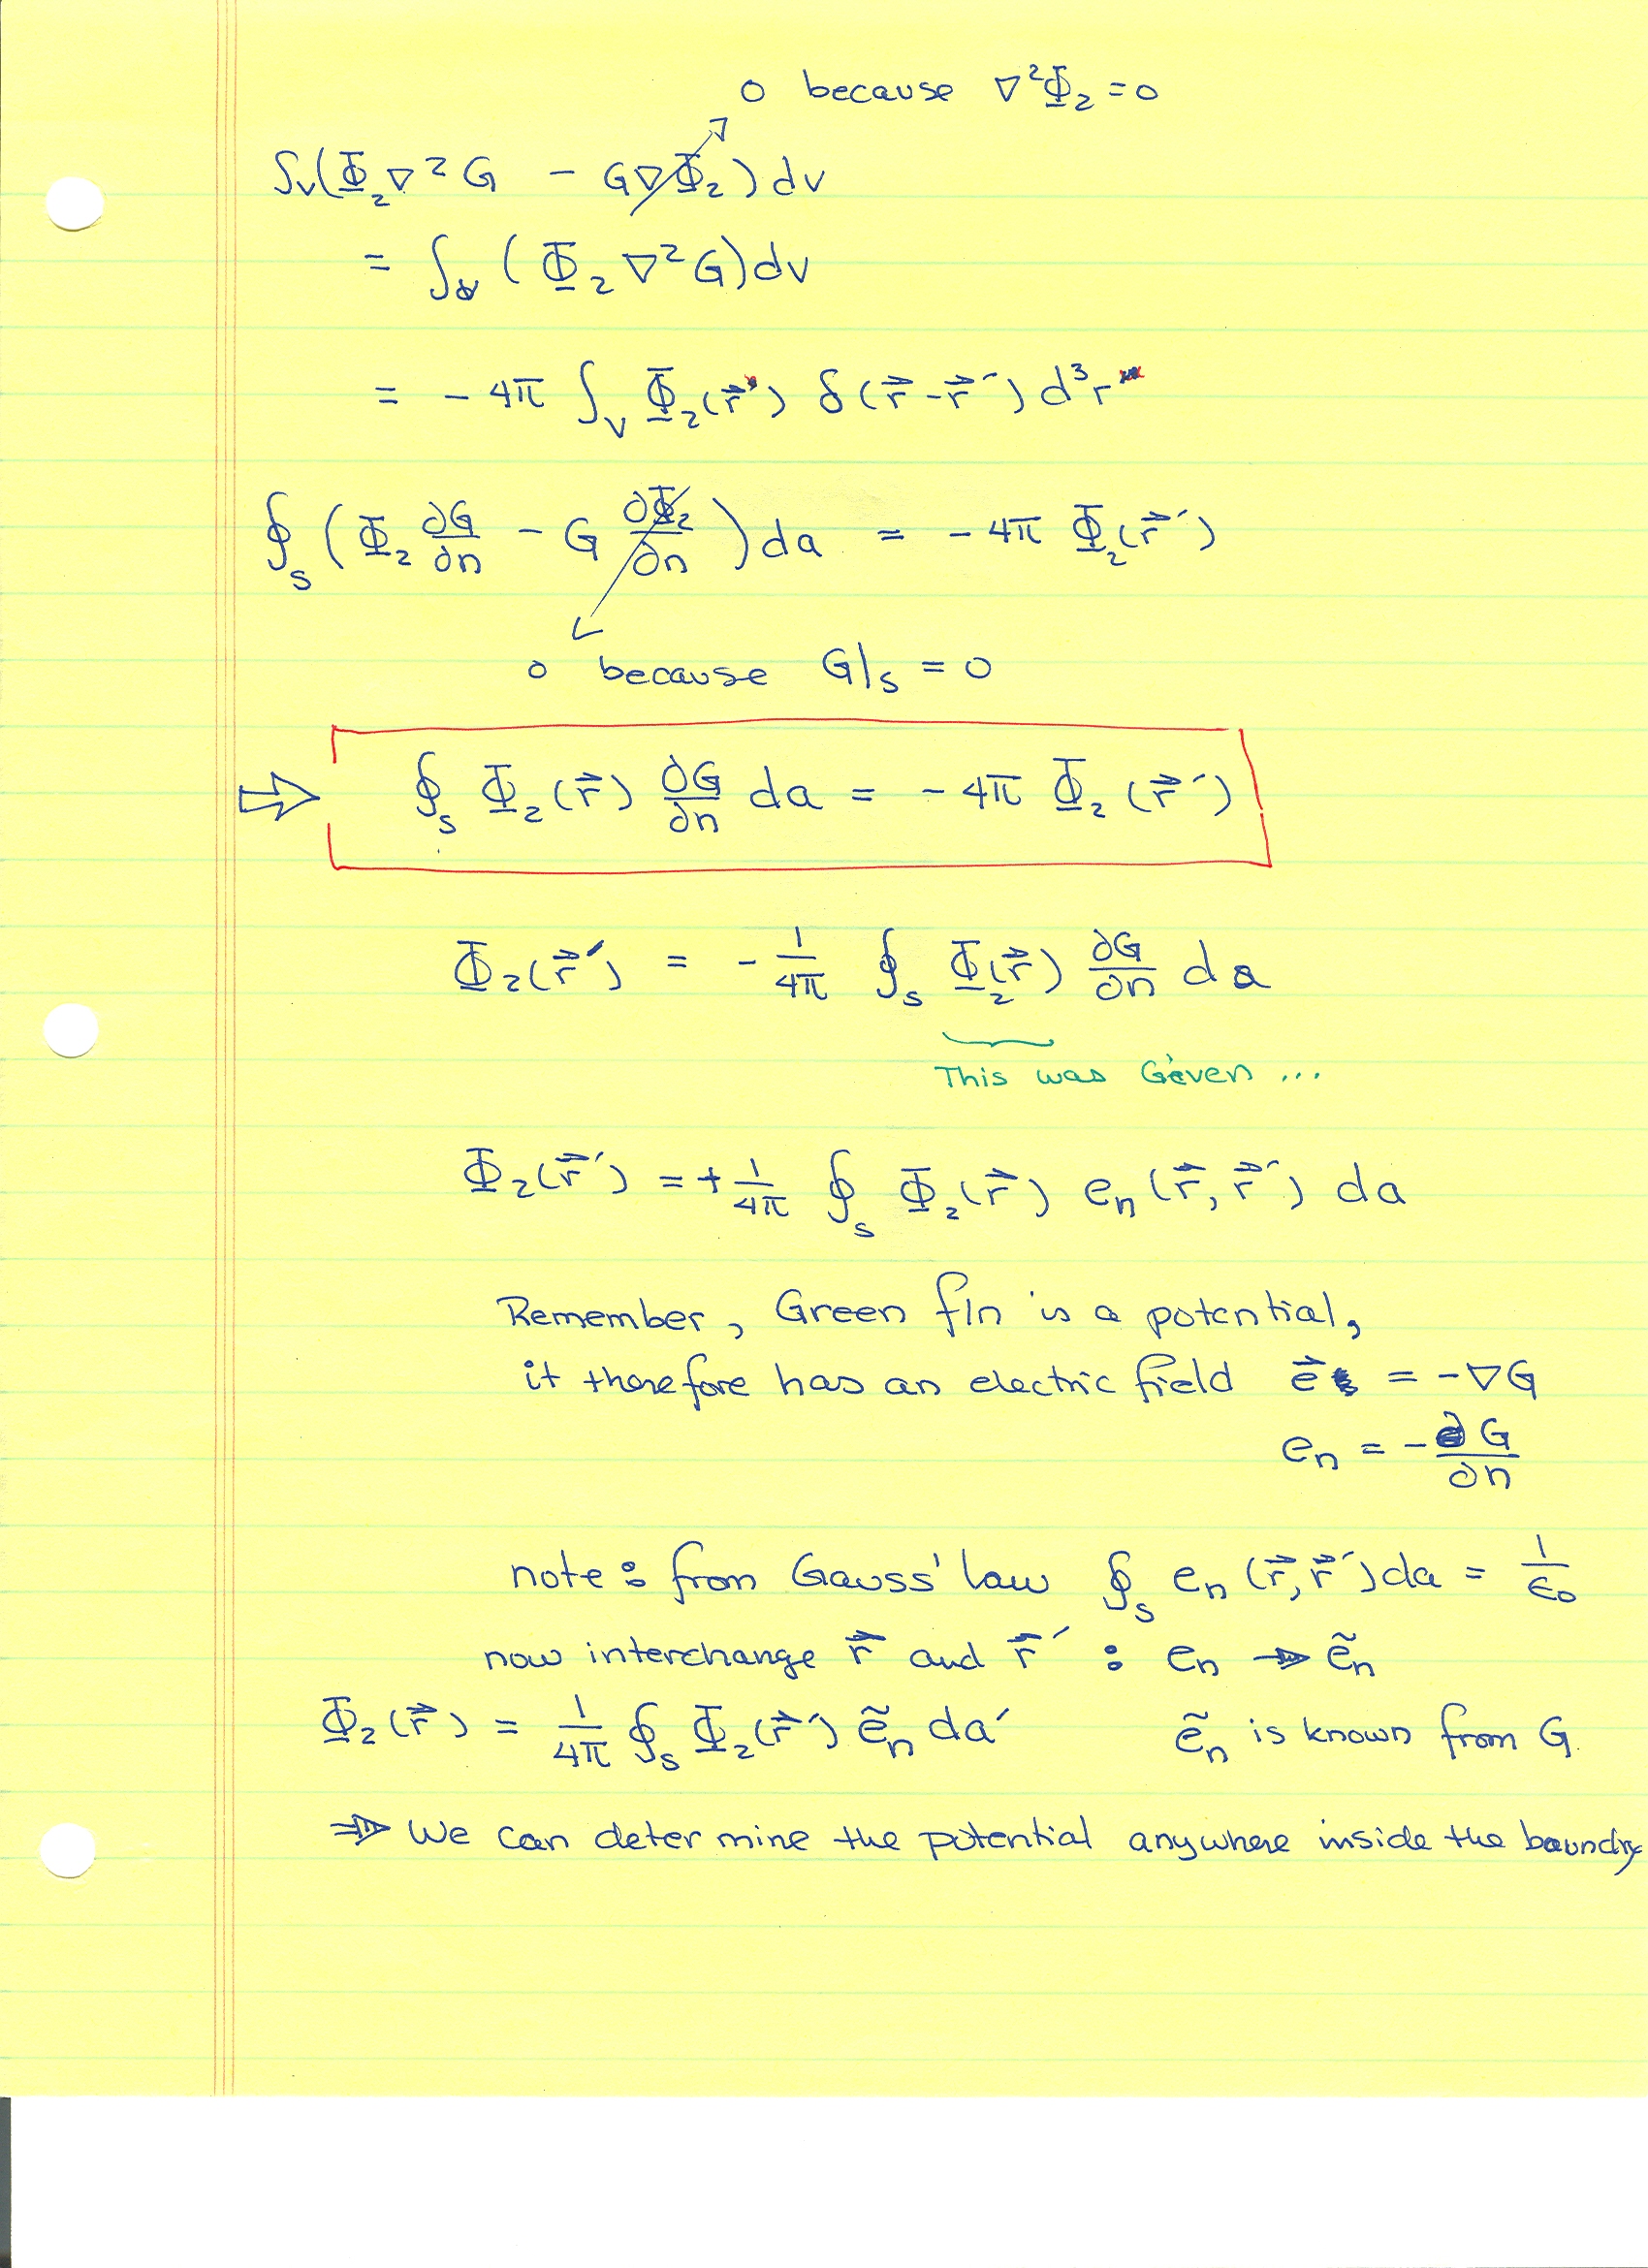 0 because ∇²Φ₂ = 0
∫ᵥ(Φ₂∇²G − G∇Φ₂)dv
= ∫ᵥ (Φ₂∇²G)dv
= −4π ∫_V Φ₂(r⃗) δ(r⃗ − r⃗′) d³r
∮_S (Φ₂ ∂G/∂n − G ∂Φ₂/∂n) da = −4π Φ₂(r⃗′)
0 because G|_S = 0
⇒ ∮_S Φ₂(r⃗) ∂G/∂n da = −4π Φ₂(r⃗′)
Φ₂(r⃗′) = −1/4π ∮_S Φ₂(r⃗) ∂G/∂n da
This was Given ...
Φ₂(r⃗′) = +1/4π ∮_S Φ₂(r⃗) eₙ(r⃗, r⃗′) da
Remember, Green fln is a potential,
it therefore has an electric field e⃗ = −∇G
eₙ = −∂G/∂n
note: from Gauss' law ∮_S eₙ(r⃗, r⃗′)da = 1/ε₀
now interchange r⃗ and r⃗′ : eₙ ⇒ ẽₙ
Φ₂(r⃗) = 1/4π ∮_S Φ₂(r⃗′) ẽₙ da′ ẽₙ is known from G.
⇒ We can determine the potential anywhere inside the boundry